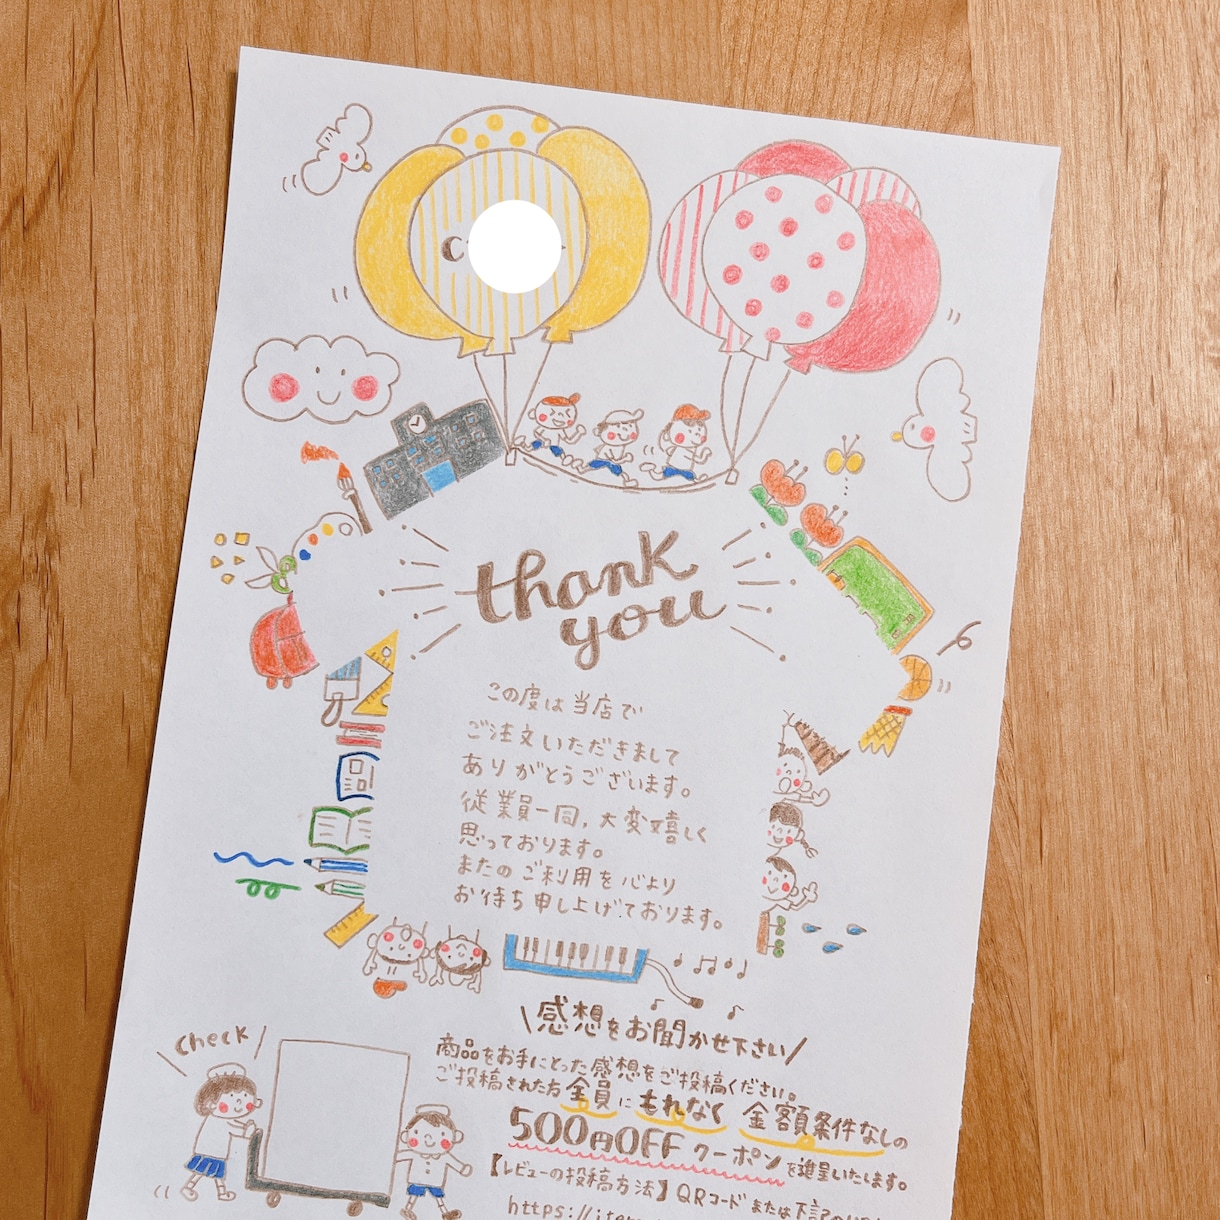 thank
you
この度は当店で
ご注文いただきまして
ありがとうございます。
従業員一同,大変嬉しく
思っております。
またのご利用を心より
お待ち申し上げております。
\感想をお聞かせ下さい/
\check/
商品をお手にとった感想をご投稿ください。
ご投稿された方全員にもれなく金額条件なしの
500円OFFクーポンを進呈いたします。
【レビューの投稿方法】QRコードまたは下記の
https://item